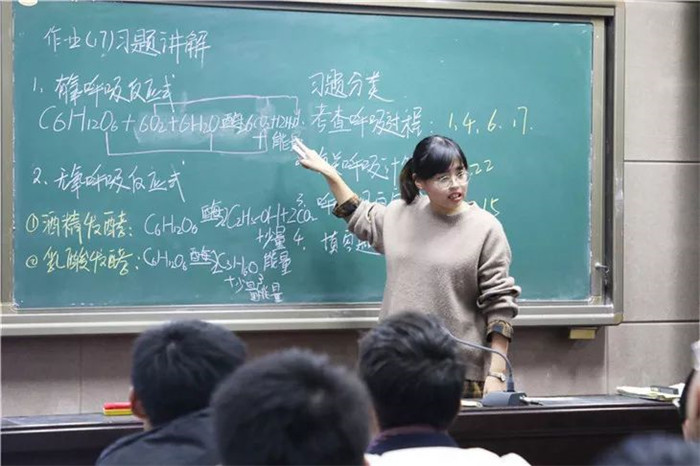 作业(17)习题讲解
1、有氧呼吸反应式
C6H12O6+6O2+6H2O酶6CO2+12H2O
+能
2、无氧呼吸反应式
①酒精发酵: C6H12O6 酶 2C2H5OH+2CO2
+少量
②乳酸发酵: C6H12O6 酶 2C3H6O3
+少量能量
能量
习题分类
考查呼吸过程: 1、4、6、17.
呼吸计 22
3、呼 15
4、填空题